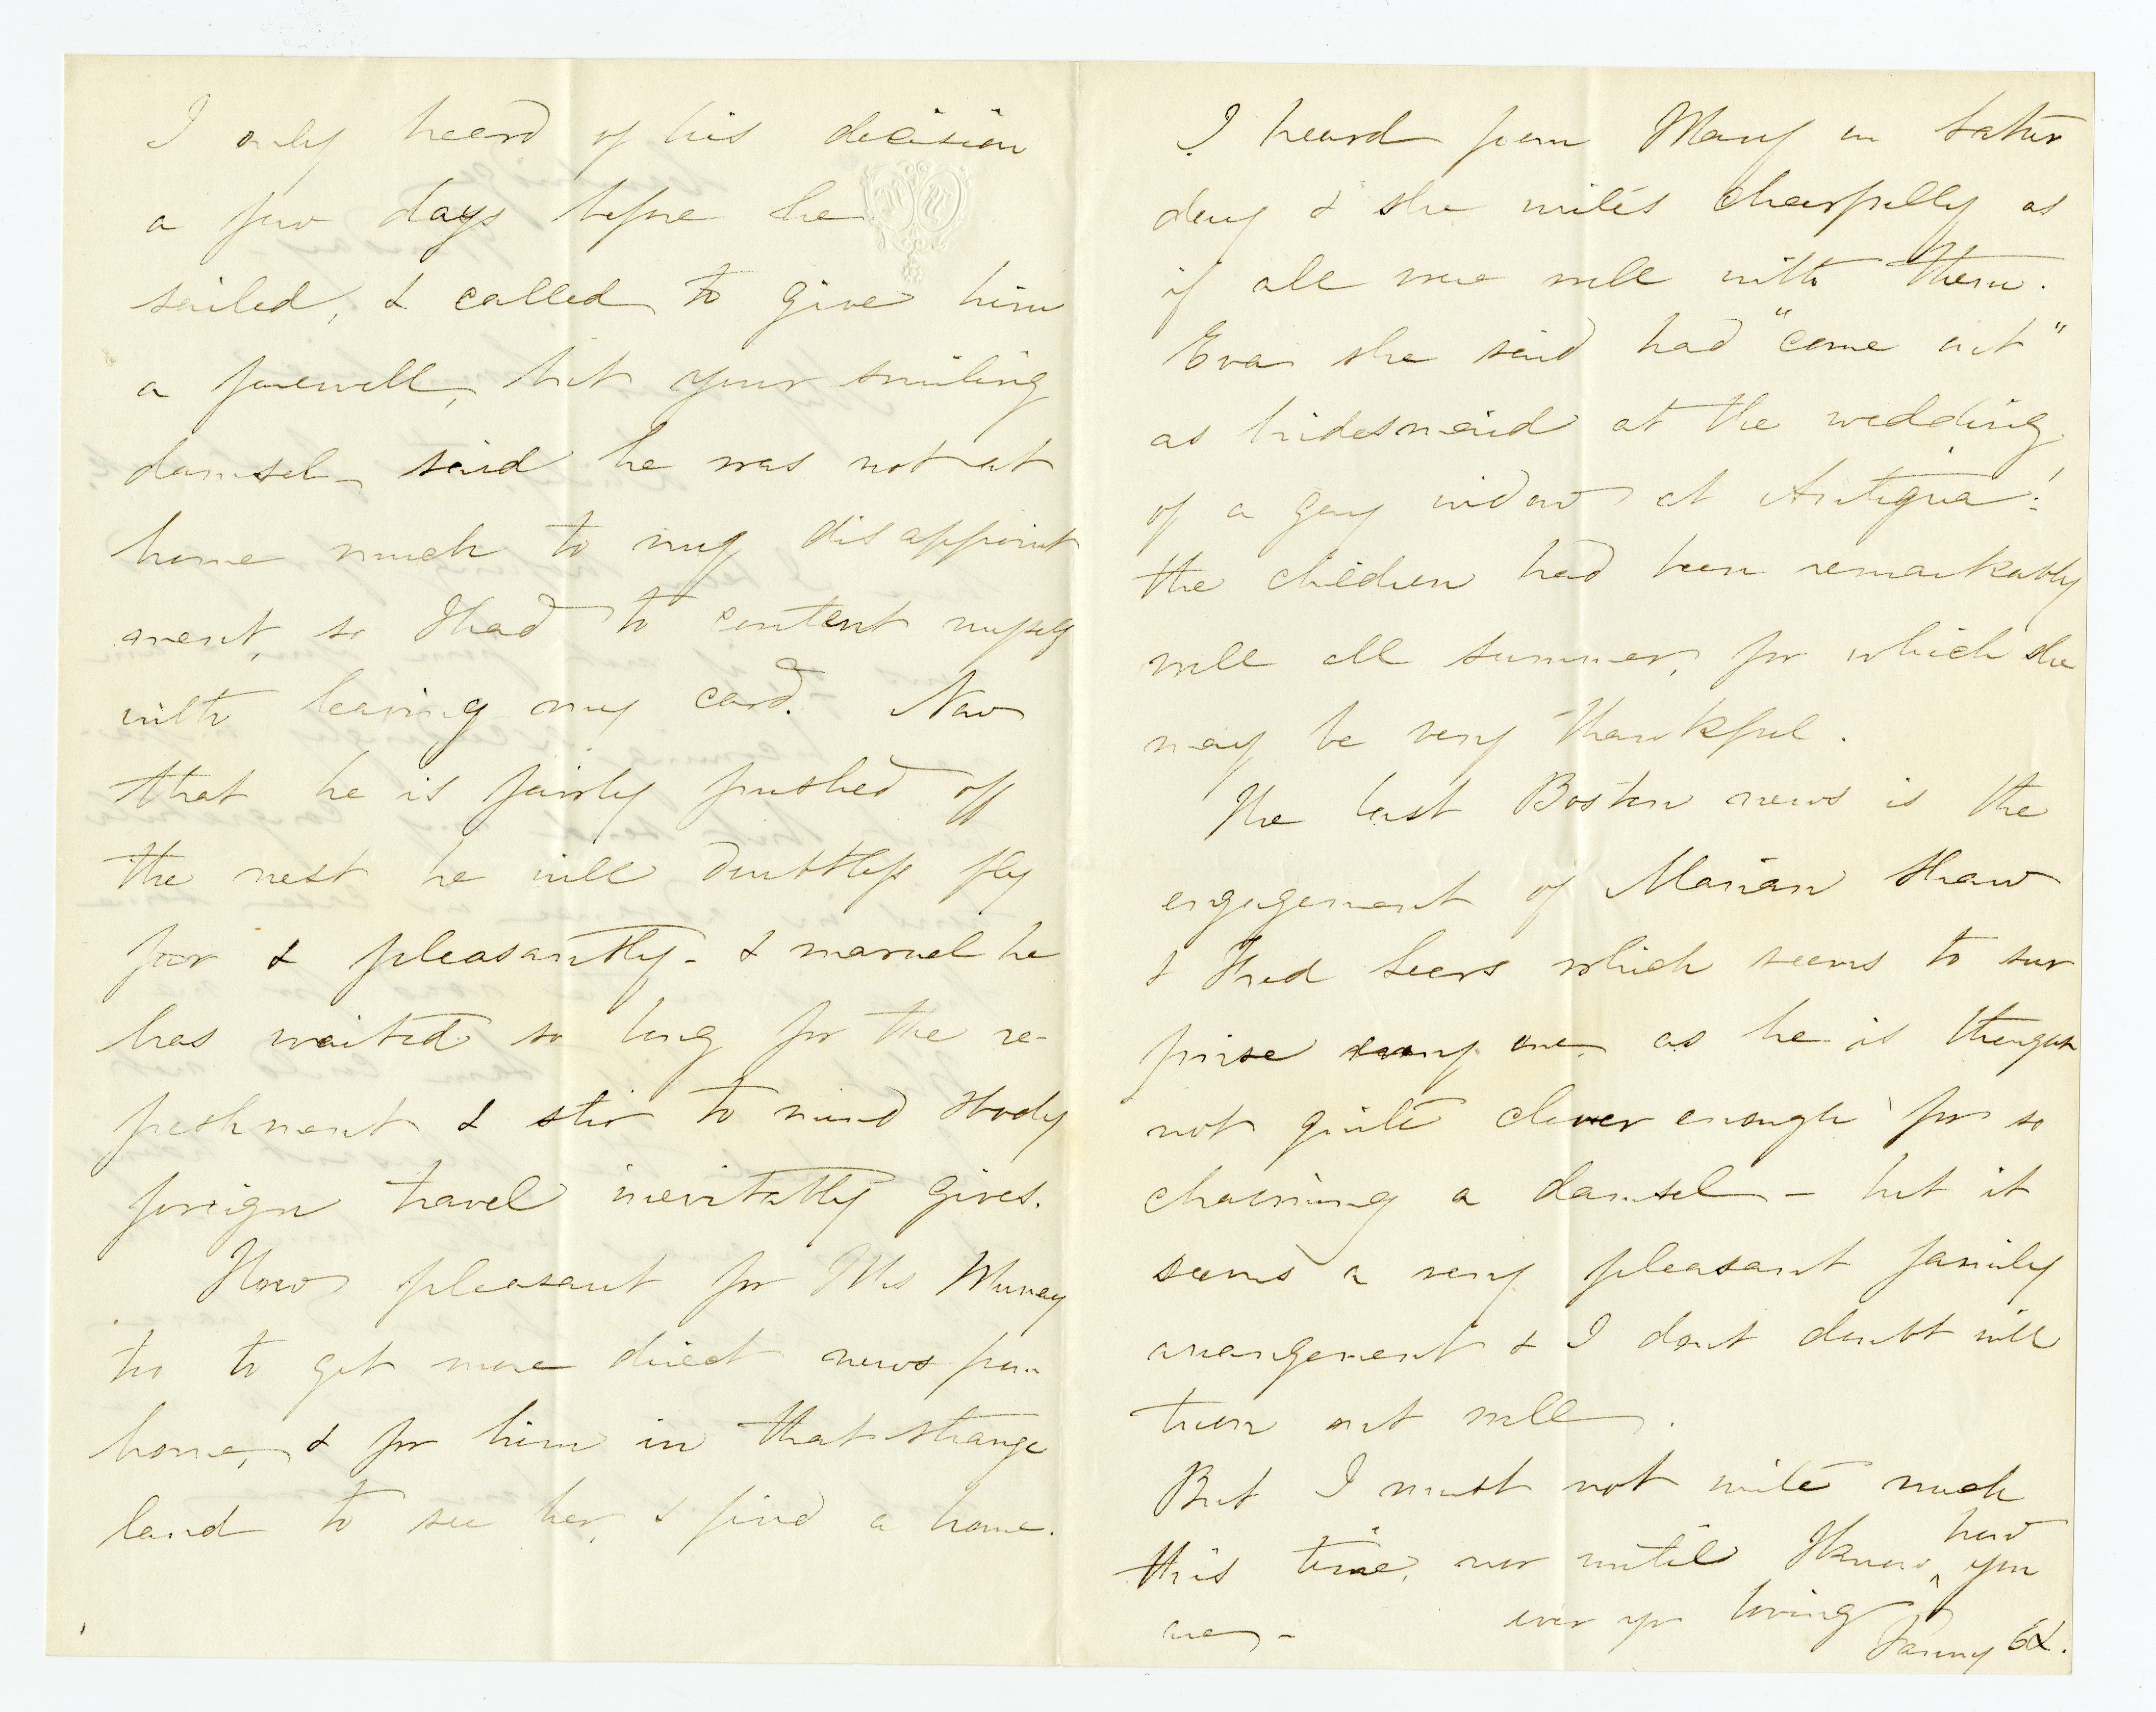 I only heard of his decision
a few days before he
sailed, & called to give him
a farewell, but your smiling
damsel said he was not at
home much to my disappoint
ment, so I had to content myself
with leaving my card. Now
that he is fairly pushed off
the nest he will doubtless fly
far & pleasantly - & marvel he
has waited so long for the re-
freshment & stir to mind & body
foreign travel inevitably gives.
How pleasant for Mrs Murray
too to get more direct news from
home, & for him in that strange
land to see her, & find a home.
I heard from Mary on Satur
day & she writes cheerfully as
if all were well with them.
Eva she said had "come out"
as bridesmaid at the wedding
of a gay widow at Antigua!
the children had been remarkably
well all summer, for which she
may be very thankful.
The last Boston news is the
engagement of Marian Shaw
& Fred Sears which seems to sur
prise every one as he is thought
not quite clever enough for so
charming a damsel - but it
seems a very pleasant family
arrangement & I dont doubt will
turn out well.
But I must not write much
this time, nor until I know how you
are - ever yr loving
Fanny E L.